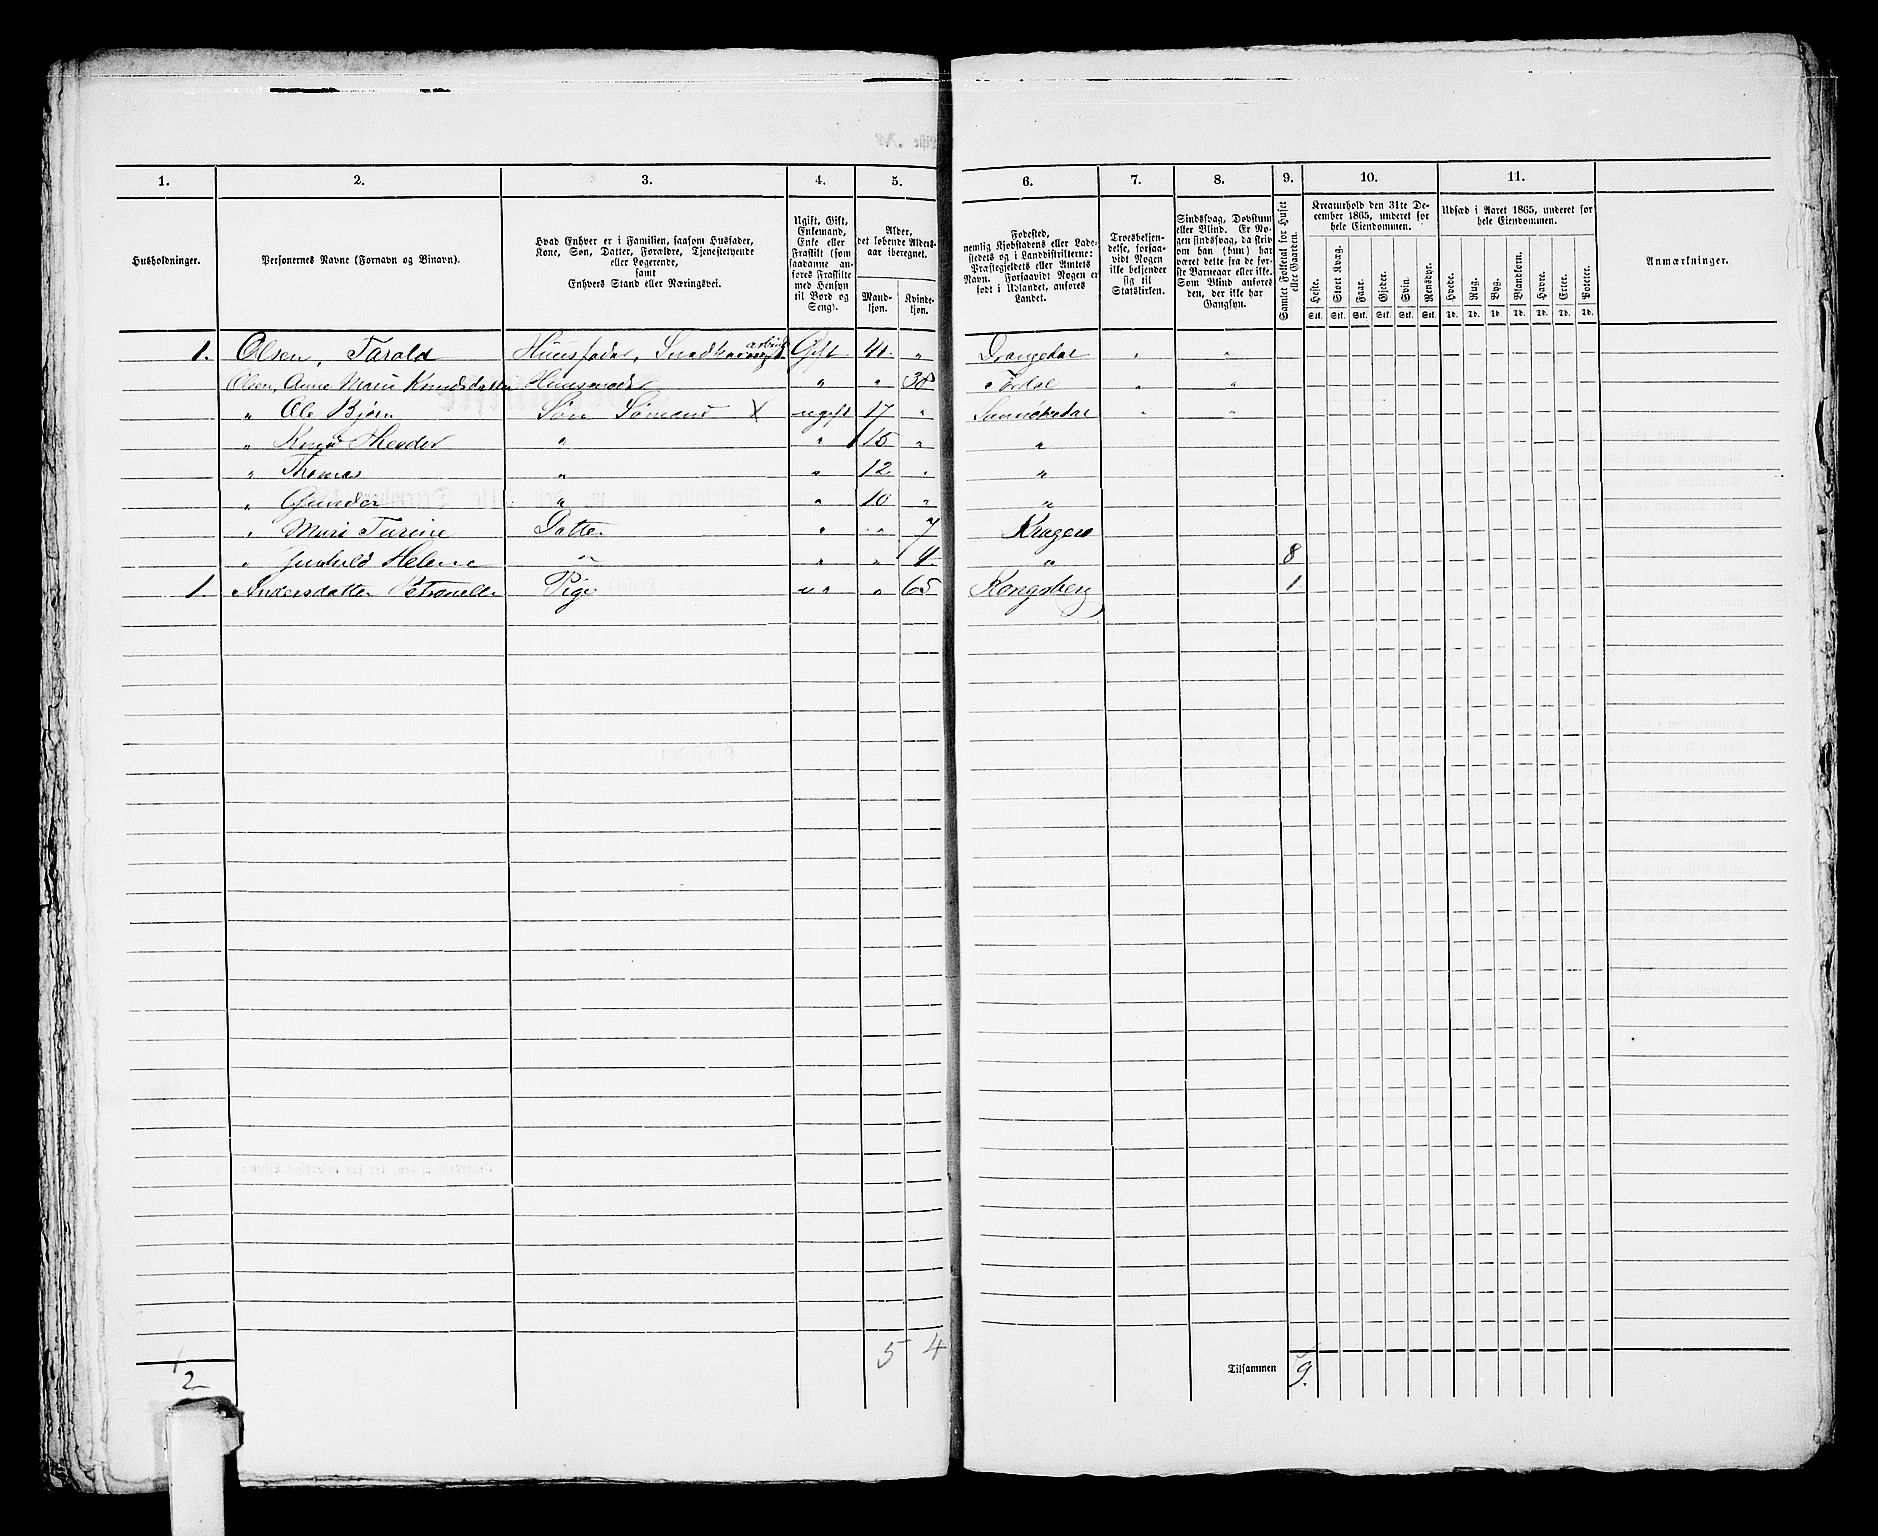 1. 2. 3. 4. 5. 6. 7. 8. 9. 10. 11.
Husholdninger.
Personernes Navne (Fornavn og Binavn).
Hvad Enhver er i Familien, saasom Husfader, Kone, Søn, Datter, Forældre, Tjenestetyende eller Logerende, samt Enhvers Stand eller Næringsvei.
Ugift, Gift, Enkemand, Enke eller Fraskilt (som saadanne anføres Fraskilte med Hensyn til Bord og Seng).
Alder, det løbende Aldersaar iberegnet.
Mandkjøn.
Kvindekjøn.
Fødested, nemlig Kjøbstadens eller Ladestedets og i Landdistrikterne: Præstegjeldets eller Amtets Navn. Forsaavidt Nogen er født i Udlandet, anføres Landet.
Troesbekjendelse, forsaavidt Nogen ikke bekjender sig til Statskirken.
Sindssvag, Døvstum eller Blind. Er Nogen sindssvag, da skriv om han (hun) har været dette fra de første Barneaar eller ikke. Som Blind anføres den, der ikke har Gangsyn.
Samlet Folketal for Huset eller Gaarden.
Kreaturhold den 31te December 1865, underet for hele Eiendommen.
Heste. Stort Kvæg. Faar. Gjeder. Svin. Rensdyr.
Stk. Stk. Stk. Stk. Stk. Stk.
Udsæd i Aaret 1865, underet for hele Eiendommen.
Hvede. Rug. Byg. Blandkorn. Havre. Erter. Poteter.
Td. Td. Td. Td. Td. Td. Td.
Anmærkninger.
1. Olsen, Tarald Huusfader, Snedker arbeid Gift 41. " Drangedal " "
Olsen, Anne Marie Knudsdatter Huusmoder " " 38 Tørdal " "
" Ole Bjørn Søn Sømand X ugift 17 " Sannikedal " "
" Knud Theodor " " 15 " "
" Thomas " " 12. " "
" Gunder " " 10 " "
" Mari Tarine Datter " " 7 Kragerø
" Gunhild Helene " " " 4 " 8
1 Andersdatter Petronelle Pige " " " 65 Kongsberg 1
5 4
2
Tilsammen 9.